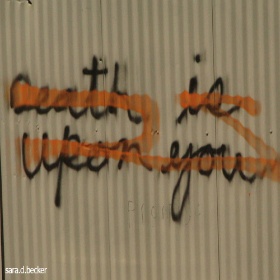 death is
upon you
sara.d.becker